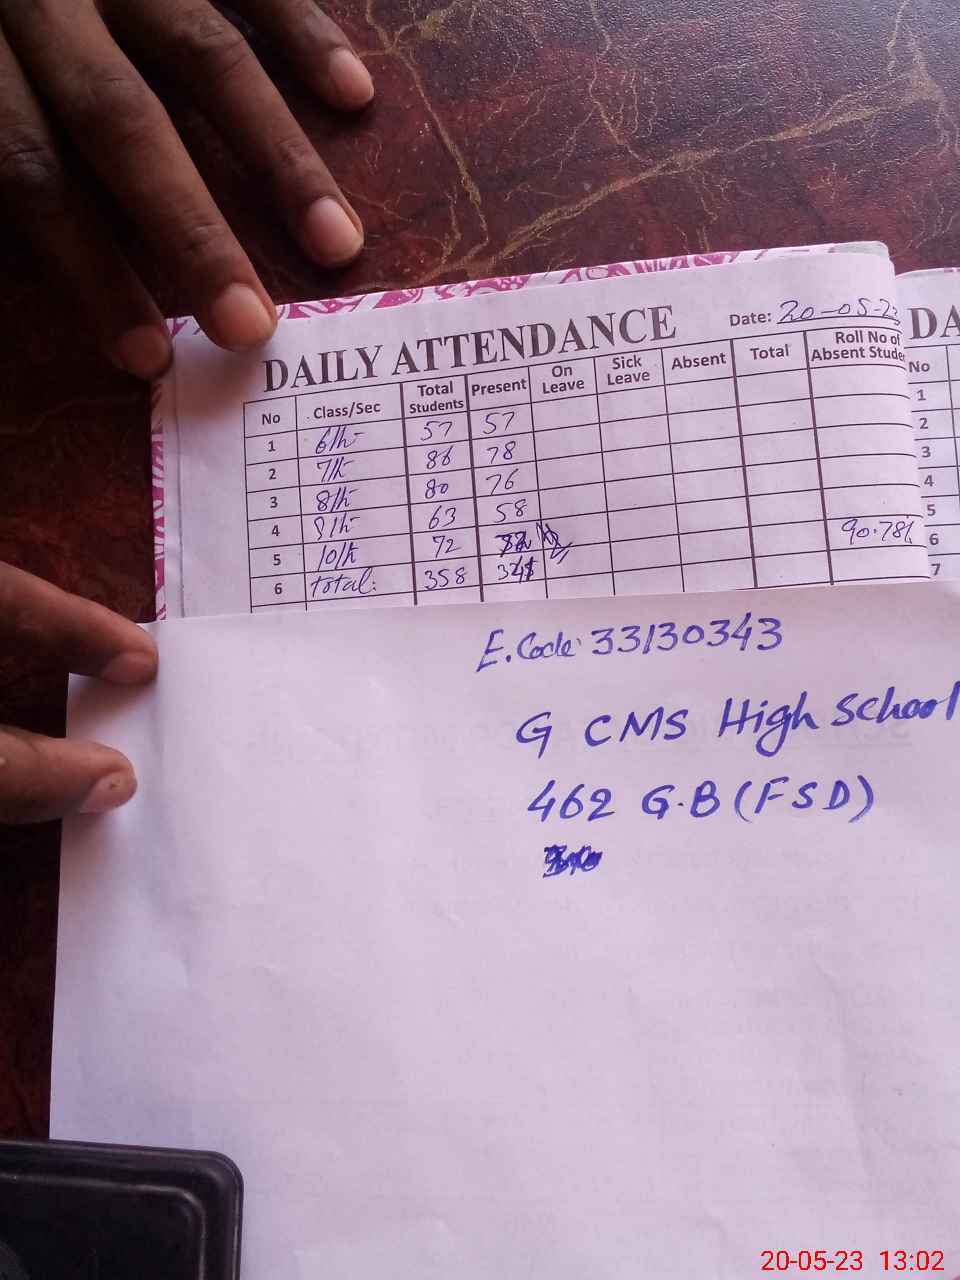 DAILY ATTENDANCE Date: 20-05-23 DA
No Class/Sec Total Students Present On Leave Sick Leave Absent Total Roll No of Absent Stude No
1 6th 57 57 1
2 7th 86 78 2
3 8th 80 76 3
4 9th 63 58 4
5 10th 72 5
6 total: 358 90.78% 6
7
E.Code: 33130343
G CMS High School
462 G.B (FSD)
20-05-23 13:02